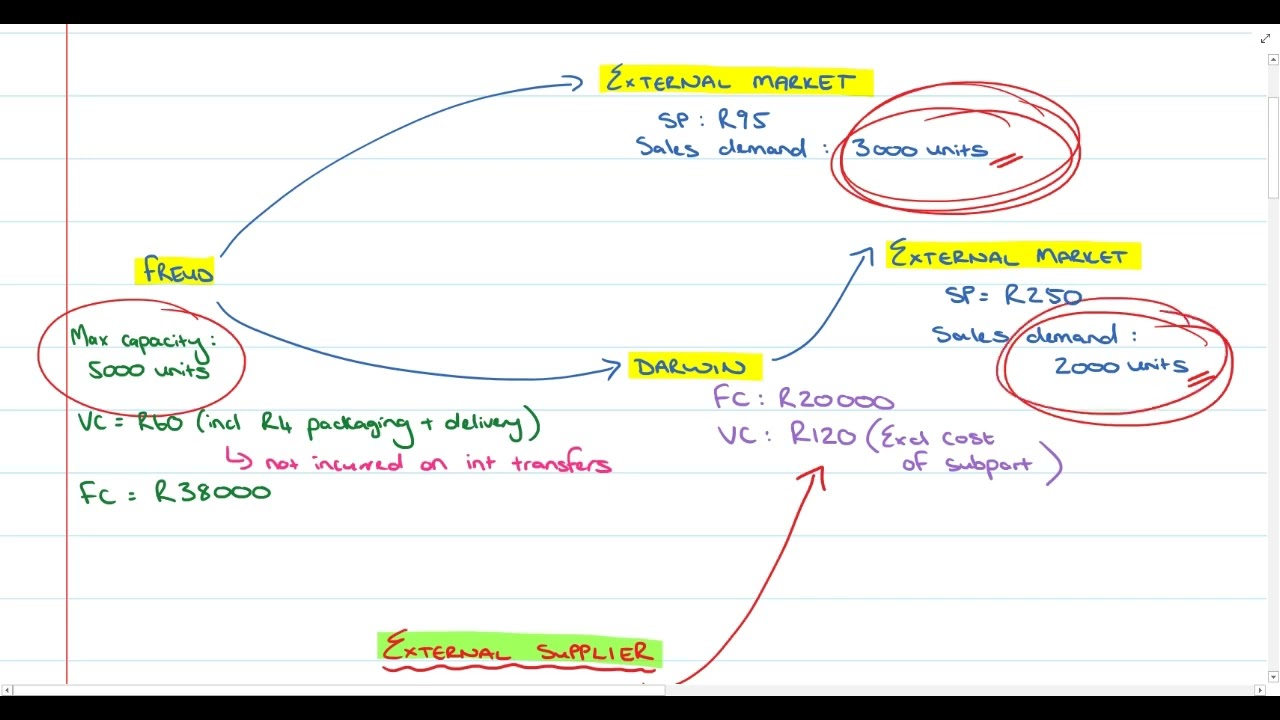 EXTERNAL MARKET
SP: R95
Sales demand : 3000 units
EXTERNAL MARKET
SP= R250
Sales demand :
2000 units
FREUD
Max capacity:
5000 units
VC = R60 (incl R4 packaging + delivery)
↳ not incurred on int transfers
FC = R38000
DARWIN
FC: R20000
VC: R120 (Excl cost
of subpart)
EXTERNAL SUPPLIER